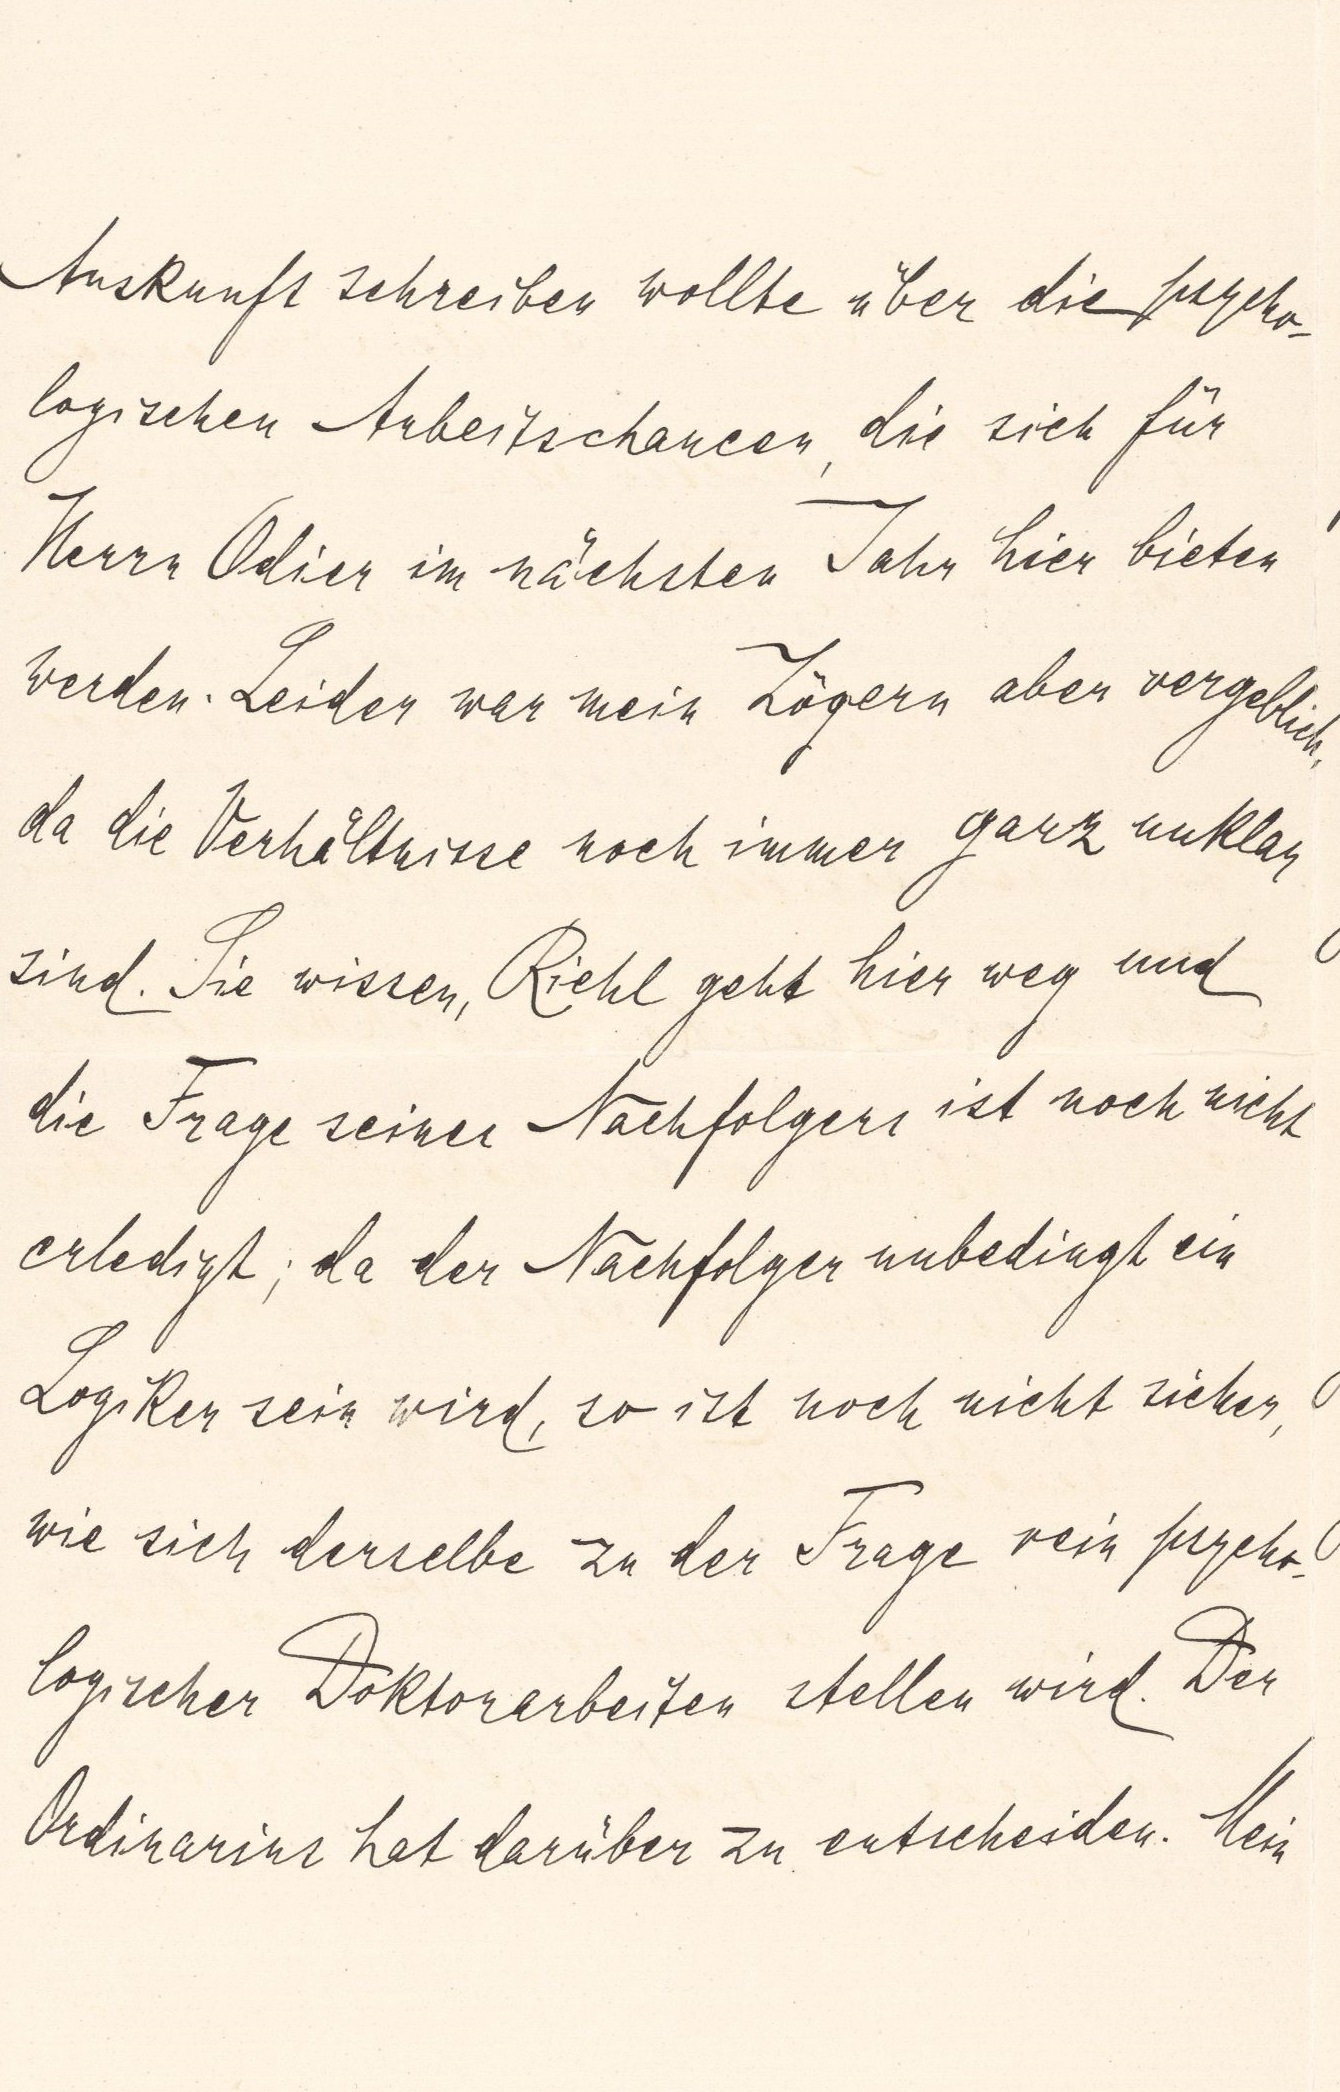 Auskunft schreiben wollte über die psycho-
logischen Arbeitschancen, die sich für
Herrn Odier im nächsten Jahr hier bieten
werden. Leider war mein Zögern aber vergeblich,
da die Verhältnisse noch immer ganz unklar
sind. Sie wissen, Riehl geht hier weg und
die Frage seines Nachfolgers ist noch nicht
erledigt; da der Nachfolger unbedingt ein
Logiker sein wird, so ist noch nicht sicher,
wie sich derselbe zu der Frage rein psycho-
logischer Doktorarbeiten stellen wird. Der
Ordinarius hat darüber zu entscheiden. Mein